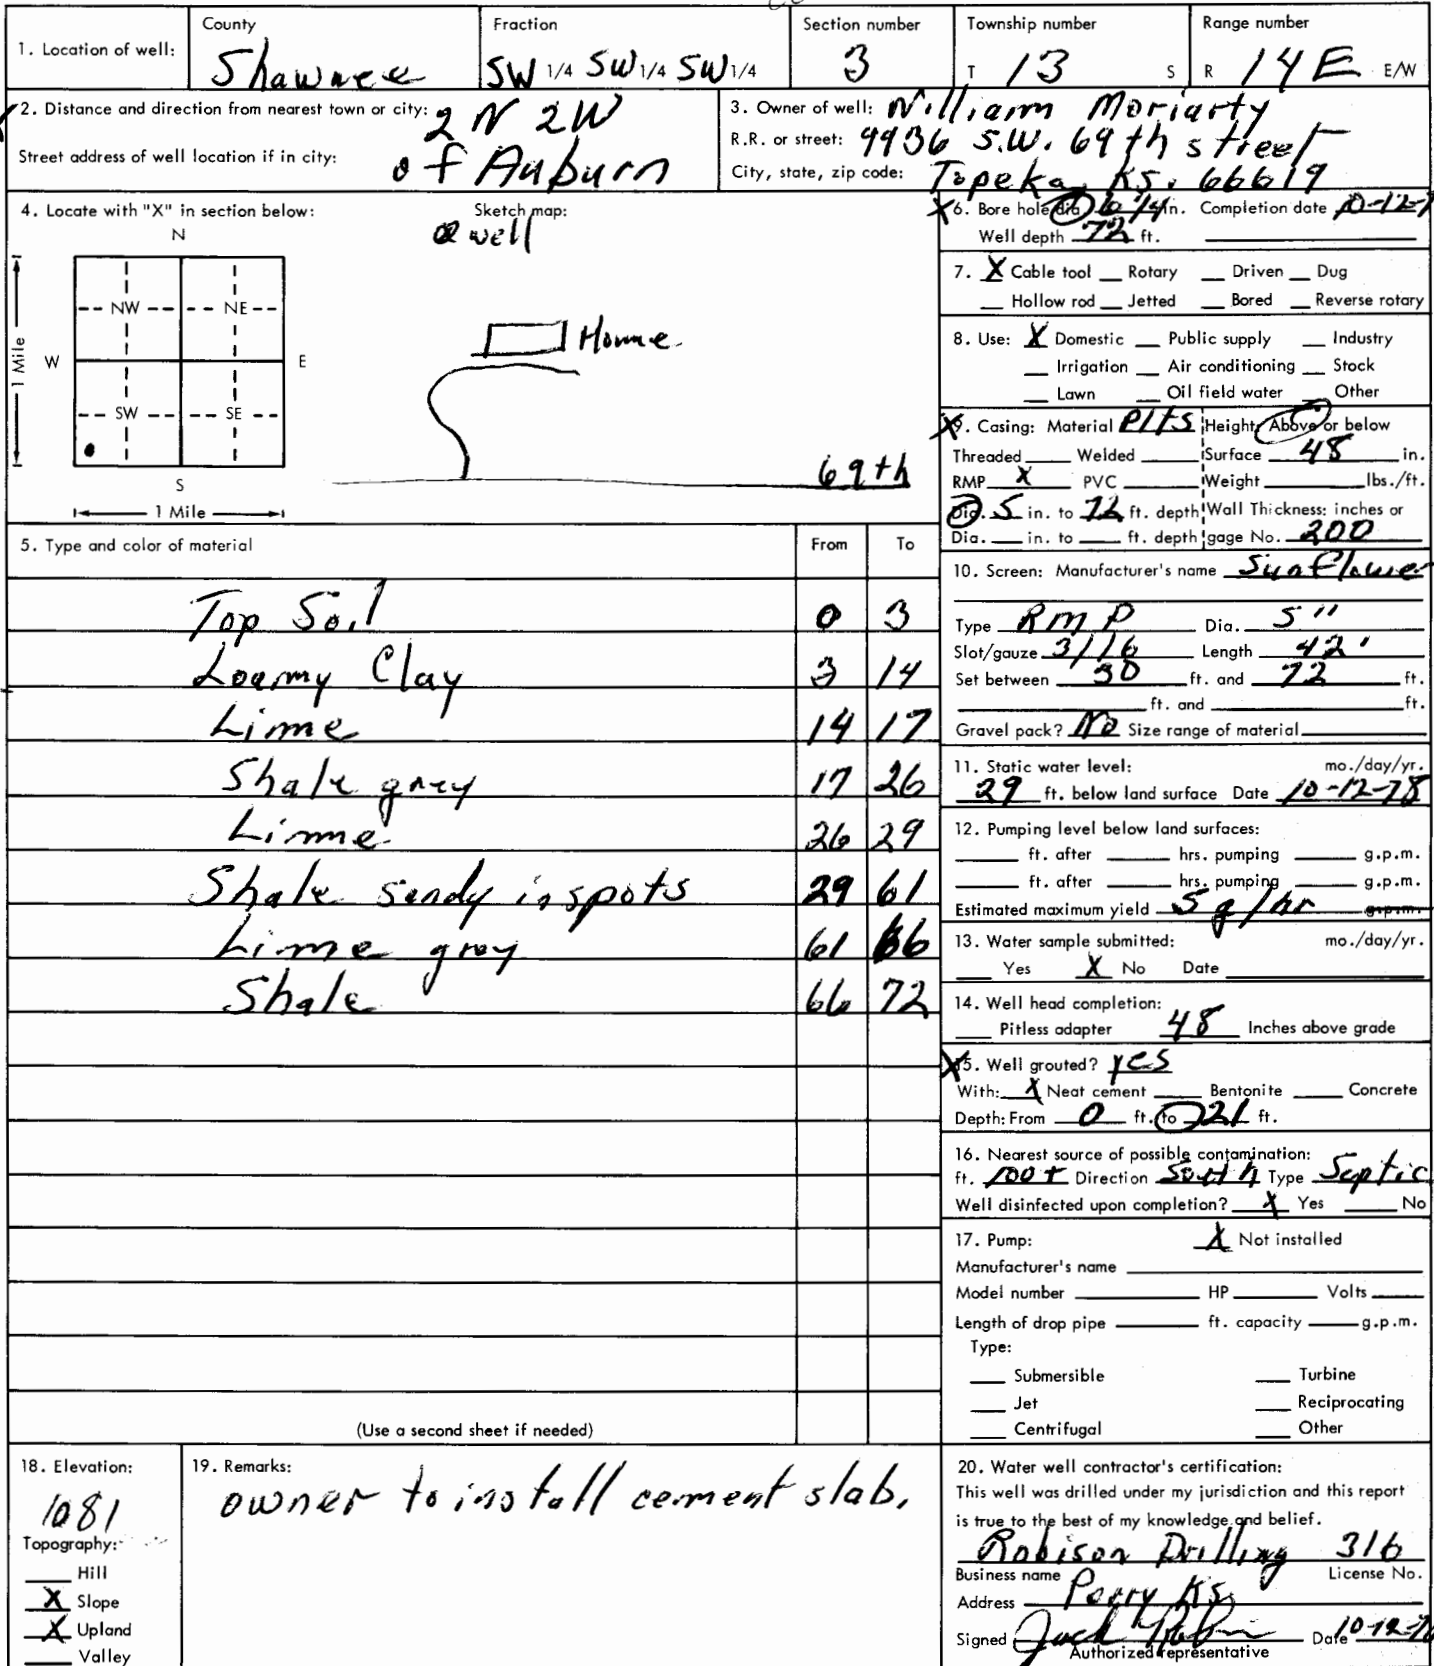 1. Location of well:
County
Shawnee
Fraction
SW 1/4 SW 1/4 SW 1/4
Section number
3
Township number
T 13 S
Range number
R 14 E E/W
2. Distance and direction from nearest town or city: 2 N 2W
Street address of well location if in city: of Auburn
3. Owner of well: William Moriarty
R.R. or street: 9936 S.W. 69th street
City, state, zip code: Topeka, Ks. 66619
4. Locate with "X" in section below:
Sketch map:
N
well
NW NE
1 Mile
W E
Home
SW SE
69th
S
1 Mile
5. Type and color of material From To
Top Soil 0 3
Loamy Clay 3 14
Lime 14 17
Shale grey 17 26
Lime 26 29
Shale sandy in spots 29 61
Lime grey 61 66
Shale 66 72
(Use a second sheet if needed)
6. Bore hole dia. 6 1/4 in. Completion date 10-12-
Well depth 72 ft.
7. X Cable tool Rotary Driven Dug
Hollow rod Jetted Bored Reverse rotary
8. Use: X Domestic Public supply Industry
Irrigation Air conditioning Stock
Lawn Oil field water Other
9. Casing: Material Plts Height: Above or below
Threaded Welded Surface 48 in.
RMP X PVC Weight lbs./ft.
Dia. 5 in. to 72 ft. depth Wall Thickness: inches or
Dia. in. to ft. depth gage No. 200
10. Screen: Manufacturer's name Sunflower
Type RMP Dia. 5"
Slot/gauze 3/16 Length 42'
Set between 30 ft. and 72 ft.
ft. and ft.
Gravel pack? No Size range of material
11. Static water level: mo./day/yr.
29 ft. below land surface Date 10-12-78
12. Pumping level below land surfaces:
ft. after hrs. pumping g.p.m.
ft. after hrs. pumping g.p.m.
Estimated maximum yield 5 g/hr g.p.m.
13. Water sample submitted: mo./day/yr.
Yes X No Date
14. Well head completion:
Pitless adapter 48 Inches above grade
15. Well grouted? yes
With: X Neat cement Bentonite Concrete
Depth: From 0 ft. to 21 ft.
16. Nearest source of possible contamination:
ft. 100+ Direction South Type Septic
Well disinfected upon completion? X Yes No
17. Pump: X Not installed
Manufacturer's name
Model number HP Volts
Length of drop pipe ft. capacity g.p.m.
Type:
Submersible Turbine
Jet Reciprocating
Centrifugal Other
18. Elevation:
1081
Topography:
Hill
X Slope
X Upland
Valley
19. Remarks:
owner to install cement slab.
20. Water well contractor's certification:
This well was drilled under my jurisdiction and this report
is true to the best of my knowledge and belief.
Robison Drilling 316
Business name License No.
Address Perry Ks.
Signed Jack Date 10-12-78
Authorized representative